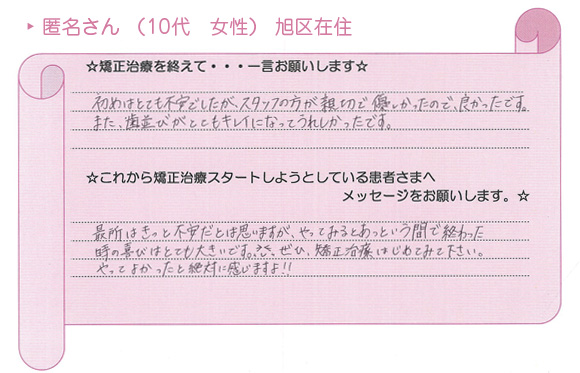 ▸ 匿名さん （10代　女性） 旭区在住
☆矯正治療を終えて・・・一言お願いします☆
初めはとても不安でしたが、スタッフの方が親切で優しかったので、良かったです。
また、歯並びがとてもキレイになってうれしかったです。
☆これから矯正治療スタートしようとしている患者さまへ
メッセージをお願いします。☆
最所はきっと不安だとは思いますが、やってみるとあっという間で終わった
時の喜びはとても大きいです。ぜひ、矯正治療はじめてみて下さい。
やってよかったと絶対に感じますよ!!